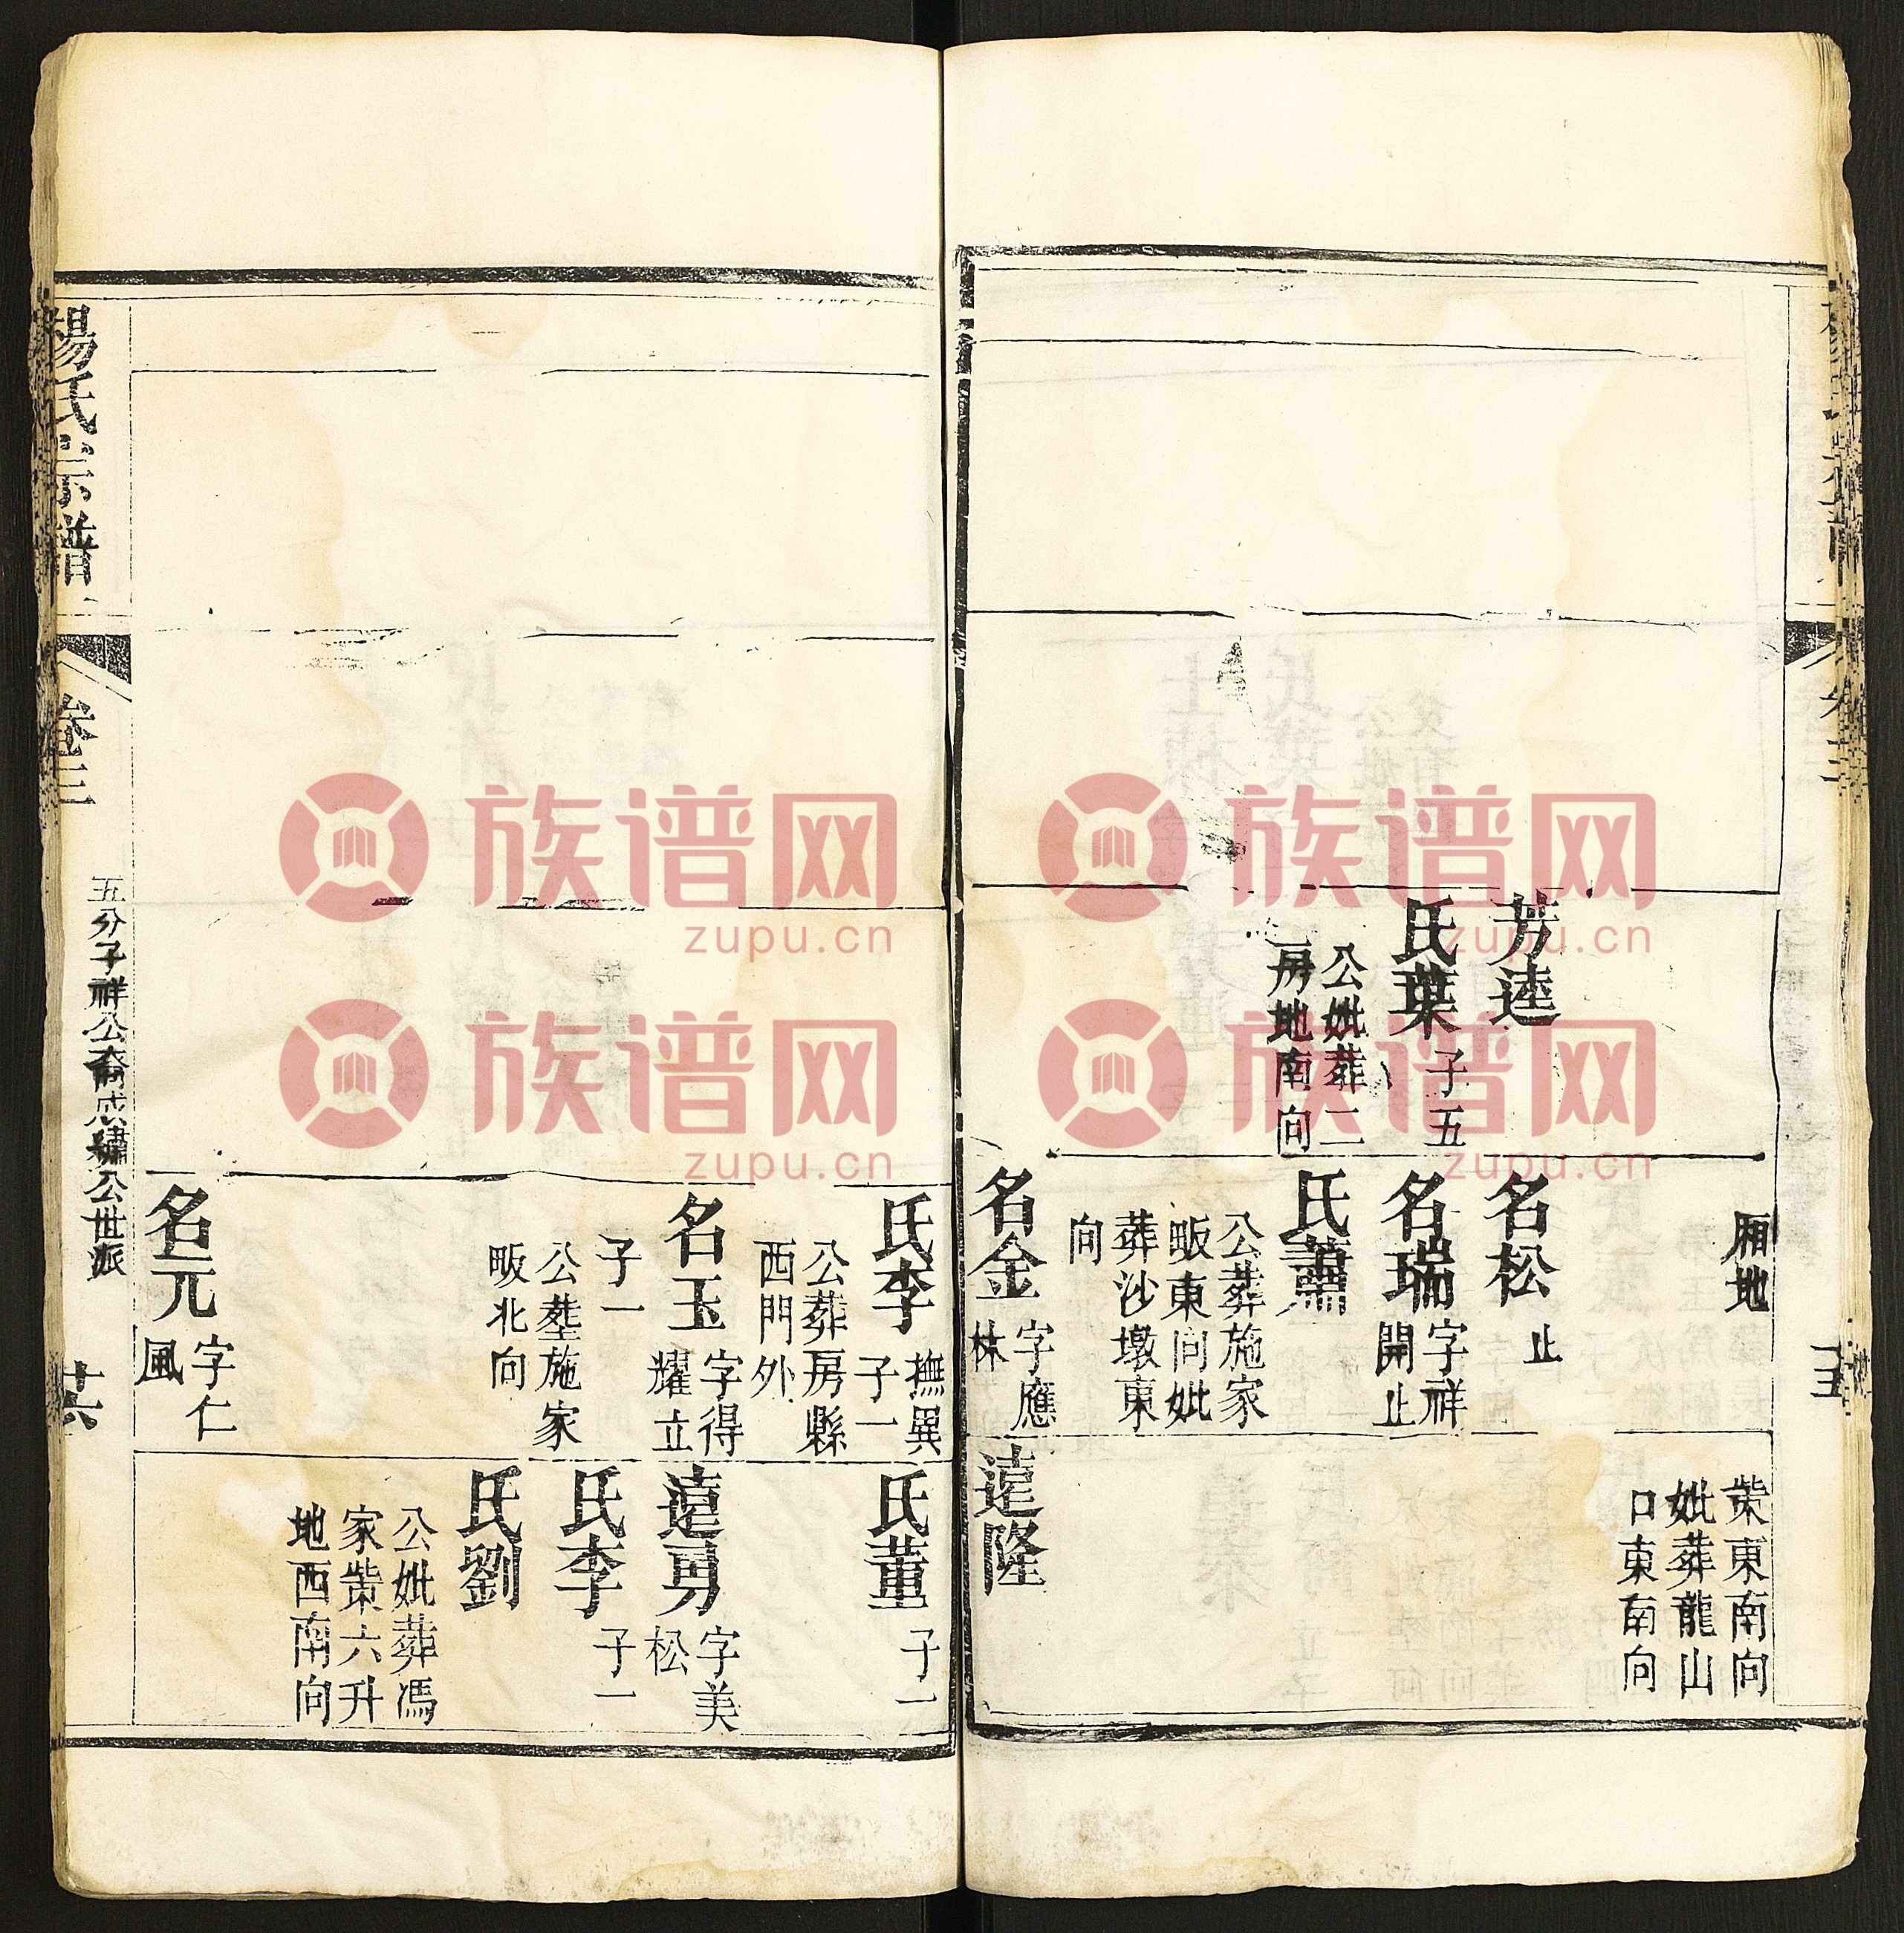 廂地
塋東南向
妣葬龍山
口東南向
芳逵
氏葉 子五
公妣葬二
房地南向
名松 止
名瑞 字祥
開止
氏蕭
公葬施家
畈東向妣
葬沙墩東
向
名金 字應
林
遠隆
氏李 撫異
子一
公葬房縣
西門外
氏董 子一
名玉 字得
耀立
子一
公塟施家
畈北向
遠勇 字美
松
氏李 子一
氏劉
公妣葬馮
家塋六升
地西南向
名元 字仁
風
楊氏宗譜
卷三
五分子祥公裔
公世派
廿六
族谱网
zupu.cn
族谱网
zupu.cn
族谱网
zupu.cn
族谱网
zupu.cn